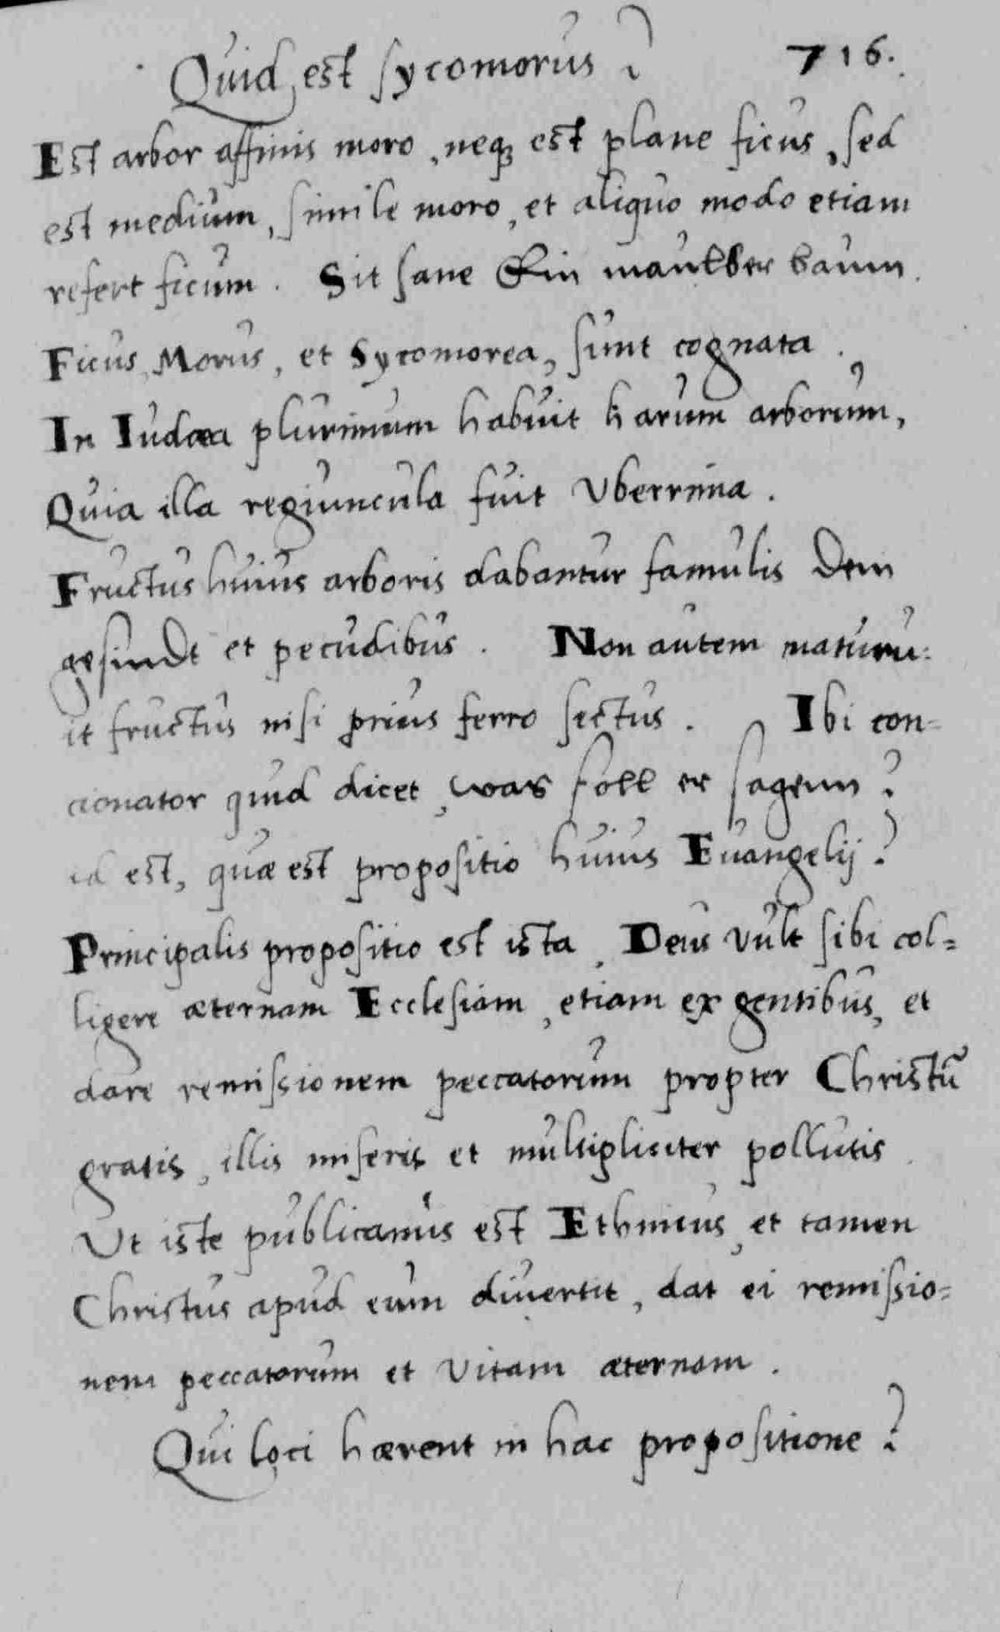 Quid est sycomorus? 716.
Est arbor affinis moro, neq; est plane ficus, sed
est medium, simile moro, et aliquo modo etiam
refert ficum. Sit sane Ein maulber baum.
Ficus, Morus, et Sycomorea, sunt cognata.
In Iudæa plurimum habuit harum arborum,
Quia illa regiuncula fuit Uberrima.
Fructus huius arboris dabantur famulis Dem
gesindt et pecudibus. Non autem maturu:
it fructus nisi prius ferro sectus. Ibi con=
cionator quid dicet, was soll er sagenn?
id est, quæ est propositio huius Euangelij?
Principalis propositio est ista. Deus vult sibi col=
ligere æternam Ecclesiam, etiam ex gentibus, et
dare remissionem peccatorum propter Christũ
gratis, illis miseris et multipliciter pollutis.
Ut iste publicanus est Ethnicus, et tamen
Christus apud eum divertit, dat ei remissio=
nem peccatorum et Vitam æternam.
Qui loci hærent in hac propositione?